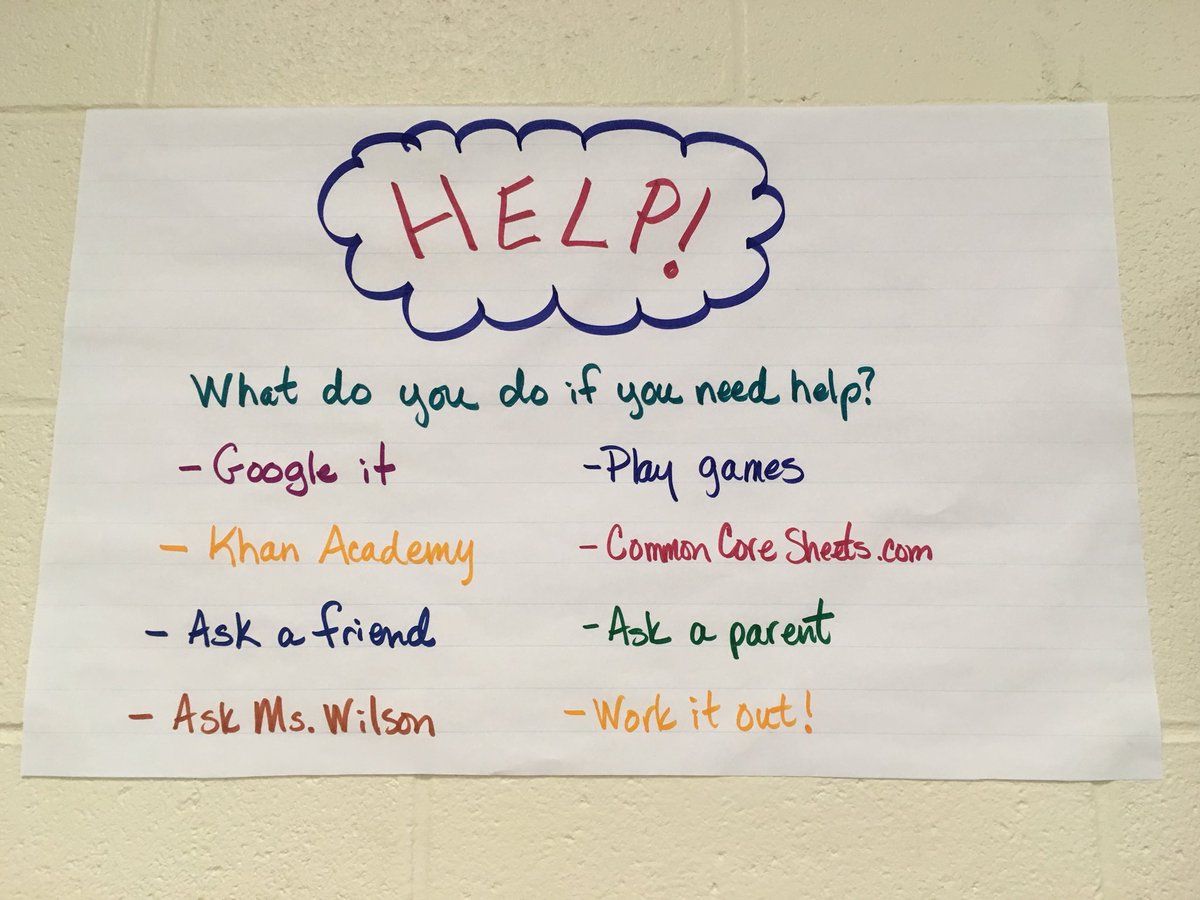 HELP!
What do you do if you need help?
- Google it
- Khan Academy
- Ask a friend
- Ask Ms. Wilson
- Play games
- Common Core Sheets.com
- Ask a parent
- Work it out!